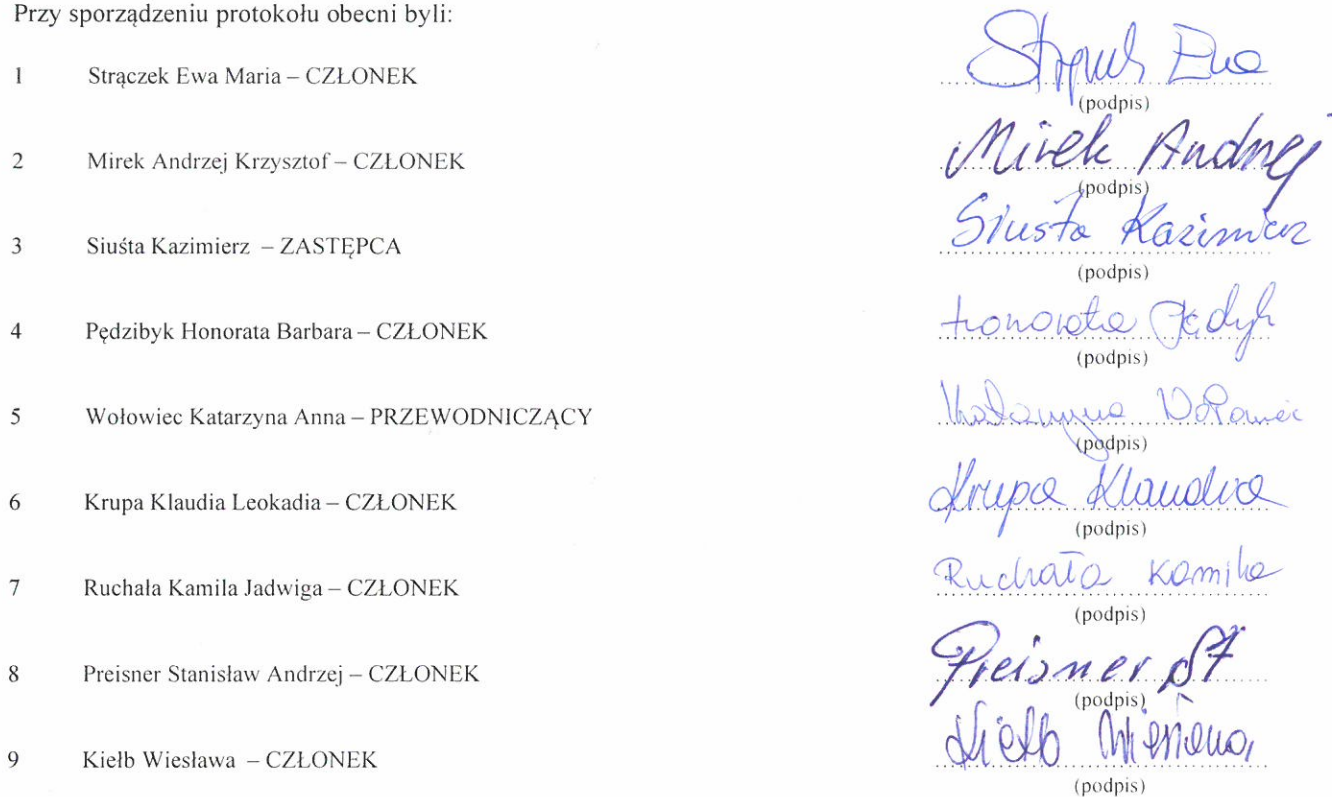 Przy sporządzeniu protokołu obecni byli:
1 Strączek Ewa Maria – CZŁONEK Ewa
(podpis)
2 Mirek Andrzej Krzysztof – CZŁONEK Mirek Andrzej
(podpis)
3 Siuśta Kazimierz – ZASTĘPCA Siuśta Kazimierz
(podpis)
4 Pędzibyk Honorata Barbara – CZŁONEK Honorata
(podpis)
5 Wołowiec Katarzyna Anna – PRZEWODNICZĄCY Katarzyna Wołowiec
(podpis)
6 Krupa Klaudia Leokadia – CZŁONEK Krupa Klaudia
(podpis)
7 Ruchała Kamila Jadwiga – CZŁONEK Ruchała Kamila
(podpis)
8 Preisner Stanisław Andrzej – CZŁONEK Preisner St
(podpis)
9 Kiełb Wiesława – CZŁONEK Kiełb Wiesława
(podpis)